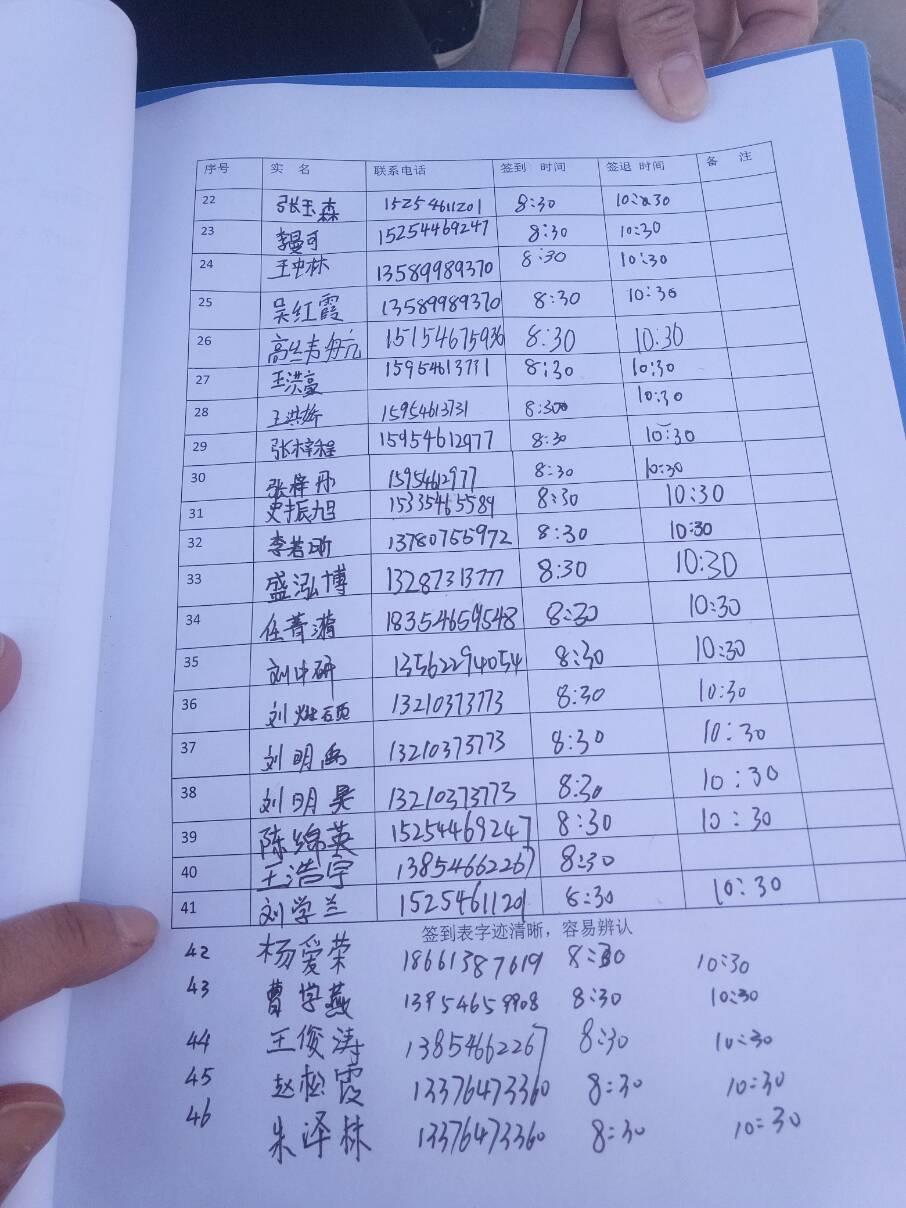 序号 实 名 联系电话 签到 时间 签退 时间 备 注
22 张玉森 15254611201 8:30 10:30
23 李曼可 15254469247 8:30 10:30
24 王中林 13589989370 8:30 10:30
25 吴红霞 13589989370 8:30 10:30
26 15154675936 8:30 10:30
27 15954613731 8:30 10:30
28 王洪娇 15954613731 8:30 10:30
29 张梓程 15954612977 8:30 10:30
30 张梓丹 15954612977 8:30 10:30
31 史振旭 15335465589 8:30 10:30
32 李若昕 13780755972 8:30 10:30
33 盛泓博 13287313777 8:30 10:30
34 任菁漪 18354659548 8:30 10:30
35 刘中研 13562294054 8:30 10:30
36 刘灿硕 13210373773 8:30 10:30
37 刘明禹 13210373773 8:30 10:30
38 刘明昊 13210373773 8:30 10:30
39 陈绵英 15254469247 8:30 10:30
40 王浩宇 13854662267 8:30
41 刘学兰 15254611201 8:30 10:30
签到表字迹清晰，容易辨认
42 杨爱荣 18661387619 8:30 10:30
43 曹学燕 13954659908 8:30 10:30
44 王俊涛 13854662267 8:30 10:30
45 赵松霞 13376473360 8:30 10:30
46 朱泽林 13376473360 8:30 10:30